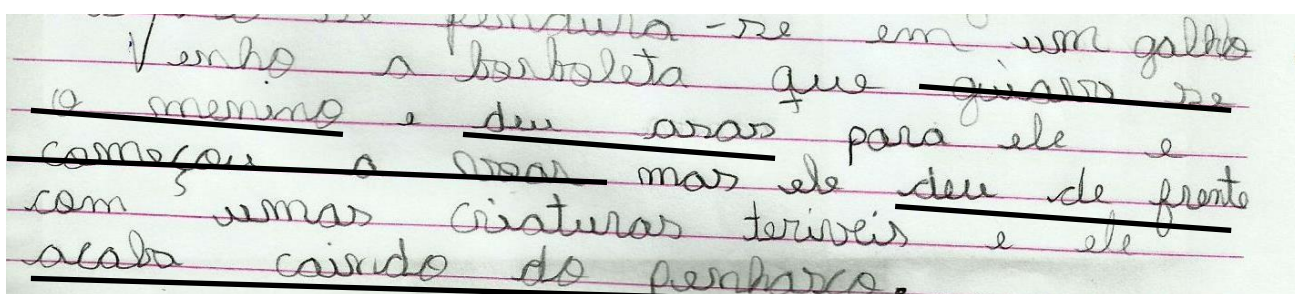 pendura-se em um galho
Venho a borboleta que guiava se
o menino e deu asas para ele e
começou a voar mas ele deu de frente
com umas criaturas teriveis e ele
acaba caindo do penhasco.